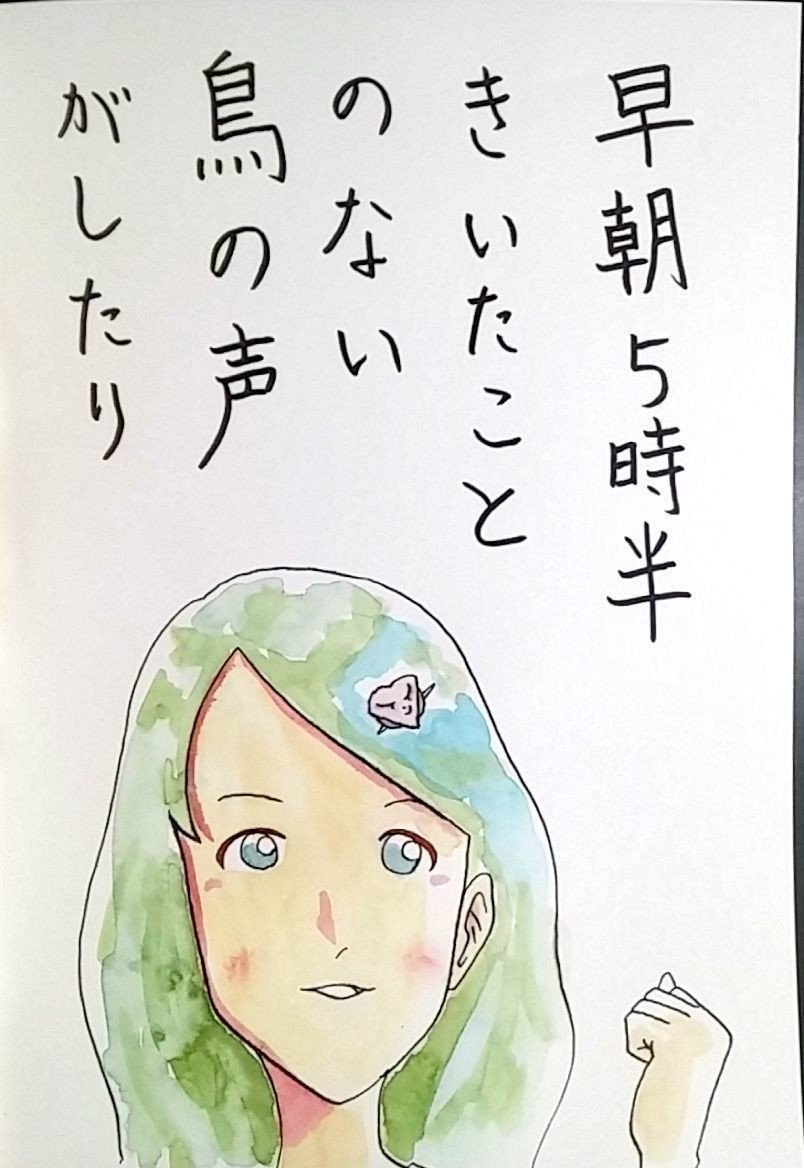 早朝5時半
きいたこと
のない
鳥の声
がしたり